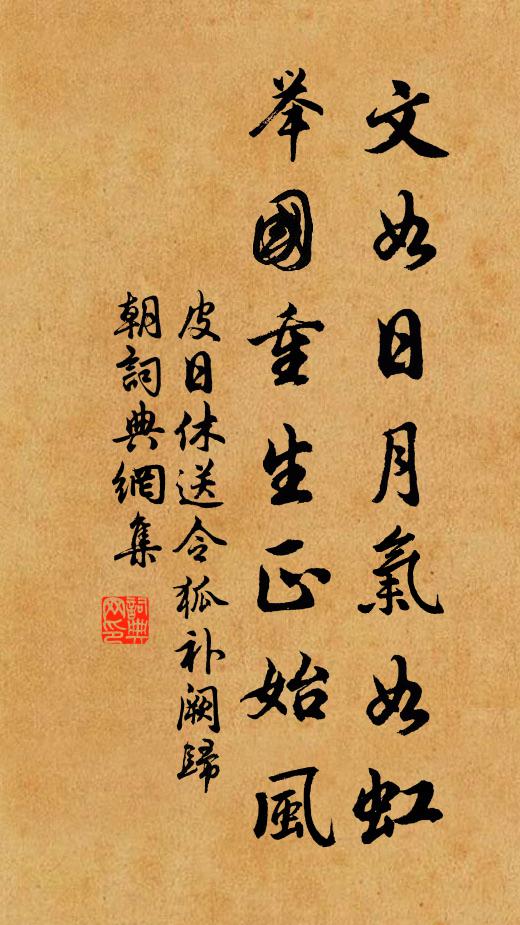 文如日月氣如虹
举國重生正始風
皮日休送令狐补阙歸
朝詞典網集
詞典
网印